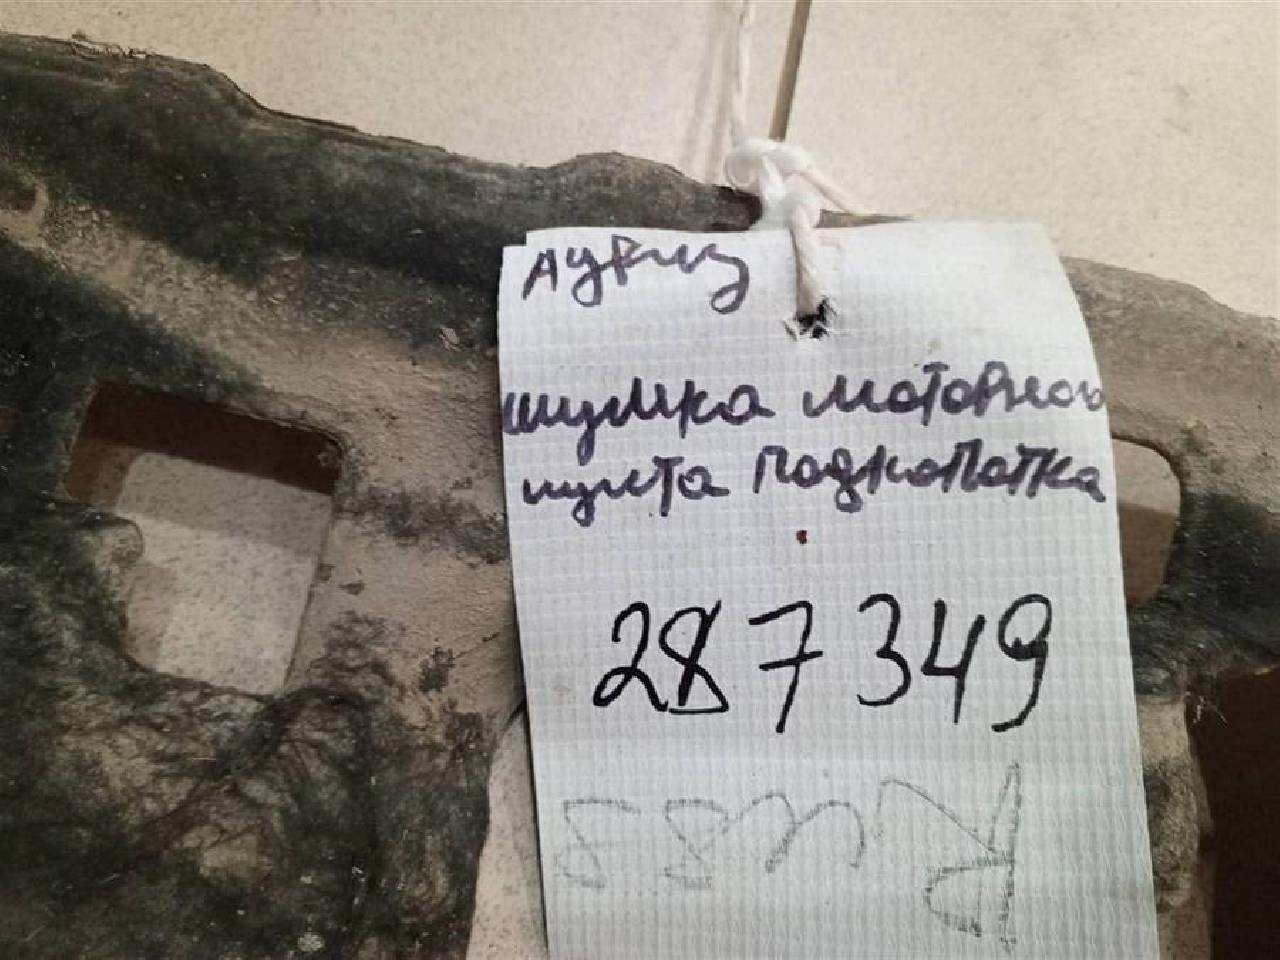 Аурис
шумка моторного
щита подкапотка
287349